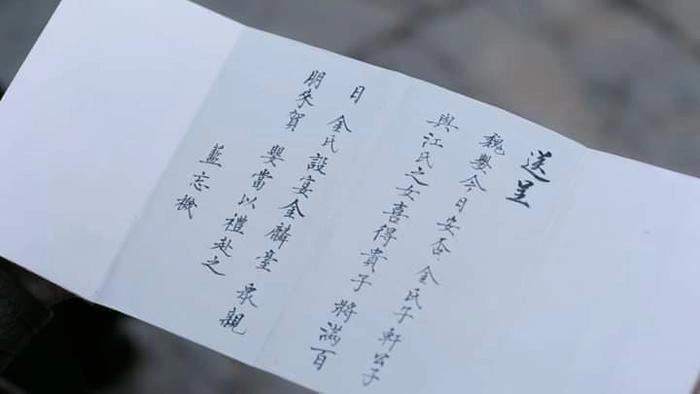 送呈
魏嬰今日安否 金氏子軒公子
與江氏之女喜得貴子 將滿百
日 金氏設宴金麟臺 承親
朋來賀 嬰當以禮赴之
藍忘機